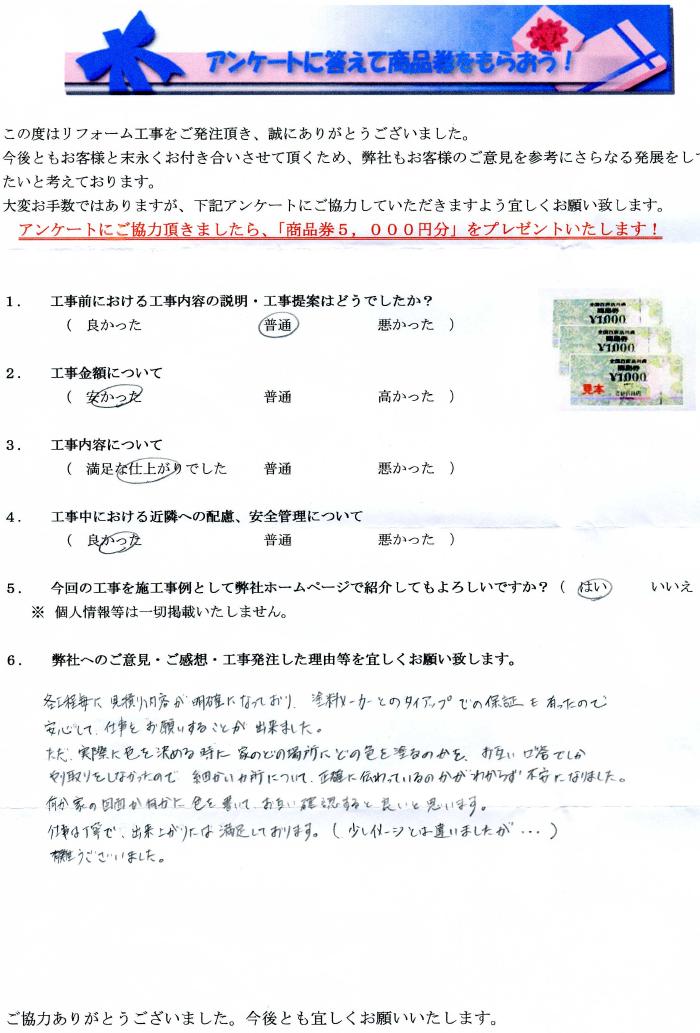 アンケートに答えて商品券をもらおう！
この度はリフォーム工事をご発注頂き、誠にありがとうございました。
今後ともお客様と末永くお付き合いさせて頂くため、弊社もお客様のご意見を参考にさらなる発展をし
たいと考えております。
大変お手数ではありますが、下記アンケートにご協力していただきますよう宜しくお願い致します。
アンケートにご協力頂きましたら、「商品券５，０００円分」をプレゼントいたします！
１．　工事前における工事内容の説明・工事提案はどうでしたか？
（　良かった　普通　悪かった　）
２．　工事金額について
（　安かった　普通　高かった　）
３．　工事内容について
（　満足な仕上がりでした　普通　悪かった　）
４．　工事中における近隣への配慮、安全管理について
（　良かった　普通　悪かった　）
５．　今回の工事を施工事例として弊社ホームページで紹介してもよろしいですか？（　はい　いいえ
※ 個人情報等は一切掲載いたしません。
¥1,000
¥1,000
¥1,000
見本
６．　弊社へのご意見・ご感想・工事発注した理由等を宜しくお願い致します。
各工程毎に見積り内容が明確になっており、塗料メーカーとのタイアップでの保証も有ったので
安心して、仕事をお願いすることが出来ました。
ただ、実際に色を決める時に家のどの場所にどの色を塗るのかを、お互い口答でしか
やり取りをしなかったので細かい箇所について、正確に伝わっているのかがわからず不安になりました。
何か家の図面か何かに色を書いて、お互い確認すると良いと思います。
仕事は丁寧で、出来上がりには満足しております。(少しイメージとは違いましたが・・・)
有難うございました。
ご協力ありがとうございました。今後とも宜しくお願いいたします。